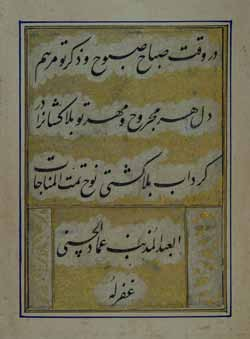 در وقت صباح صبوح و ذکر تو مرهم
دل هر مجروح و مهر تو بلاکشانرا در
گرداب بلا کشتی نوح تمت المناجات
العبد المذنب عماد الحسنی
غفر له